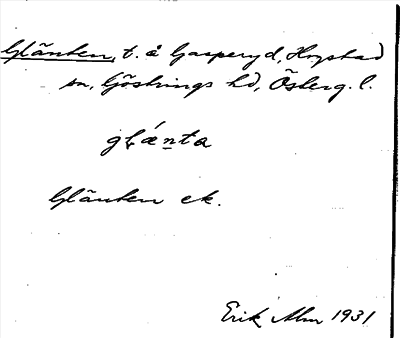 Glänten, t. å Gasperyd, Hogstad
sn, Göstrings hd, Österg. l.
glǽn̲ta
Glänten ek.
Erik Alm 1931